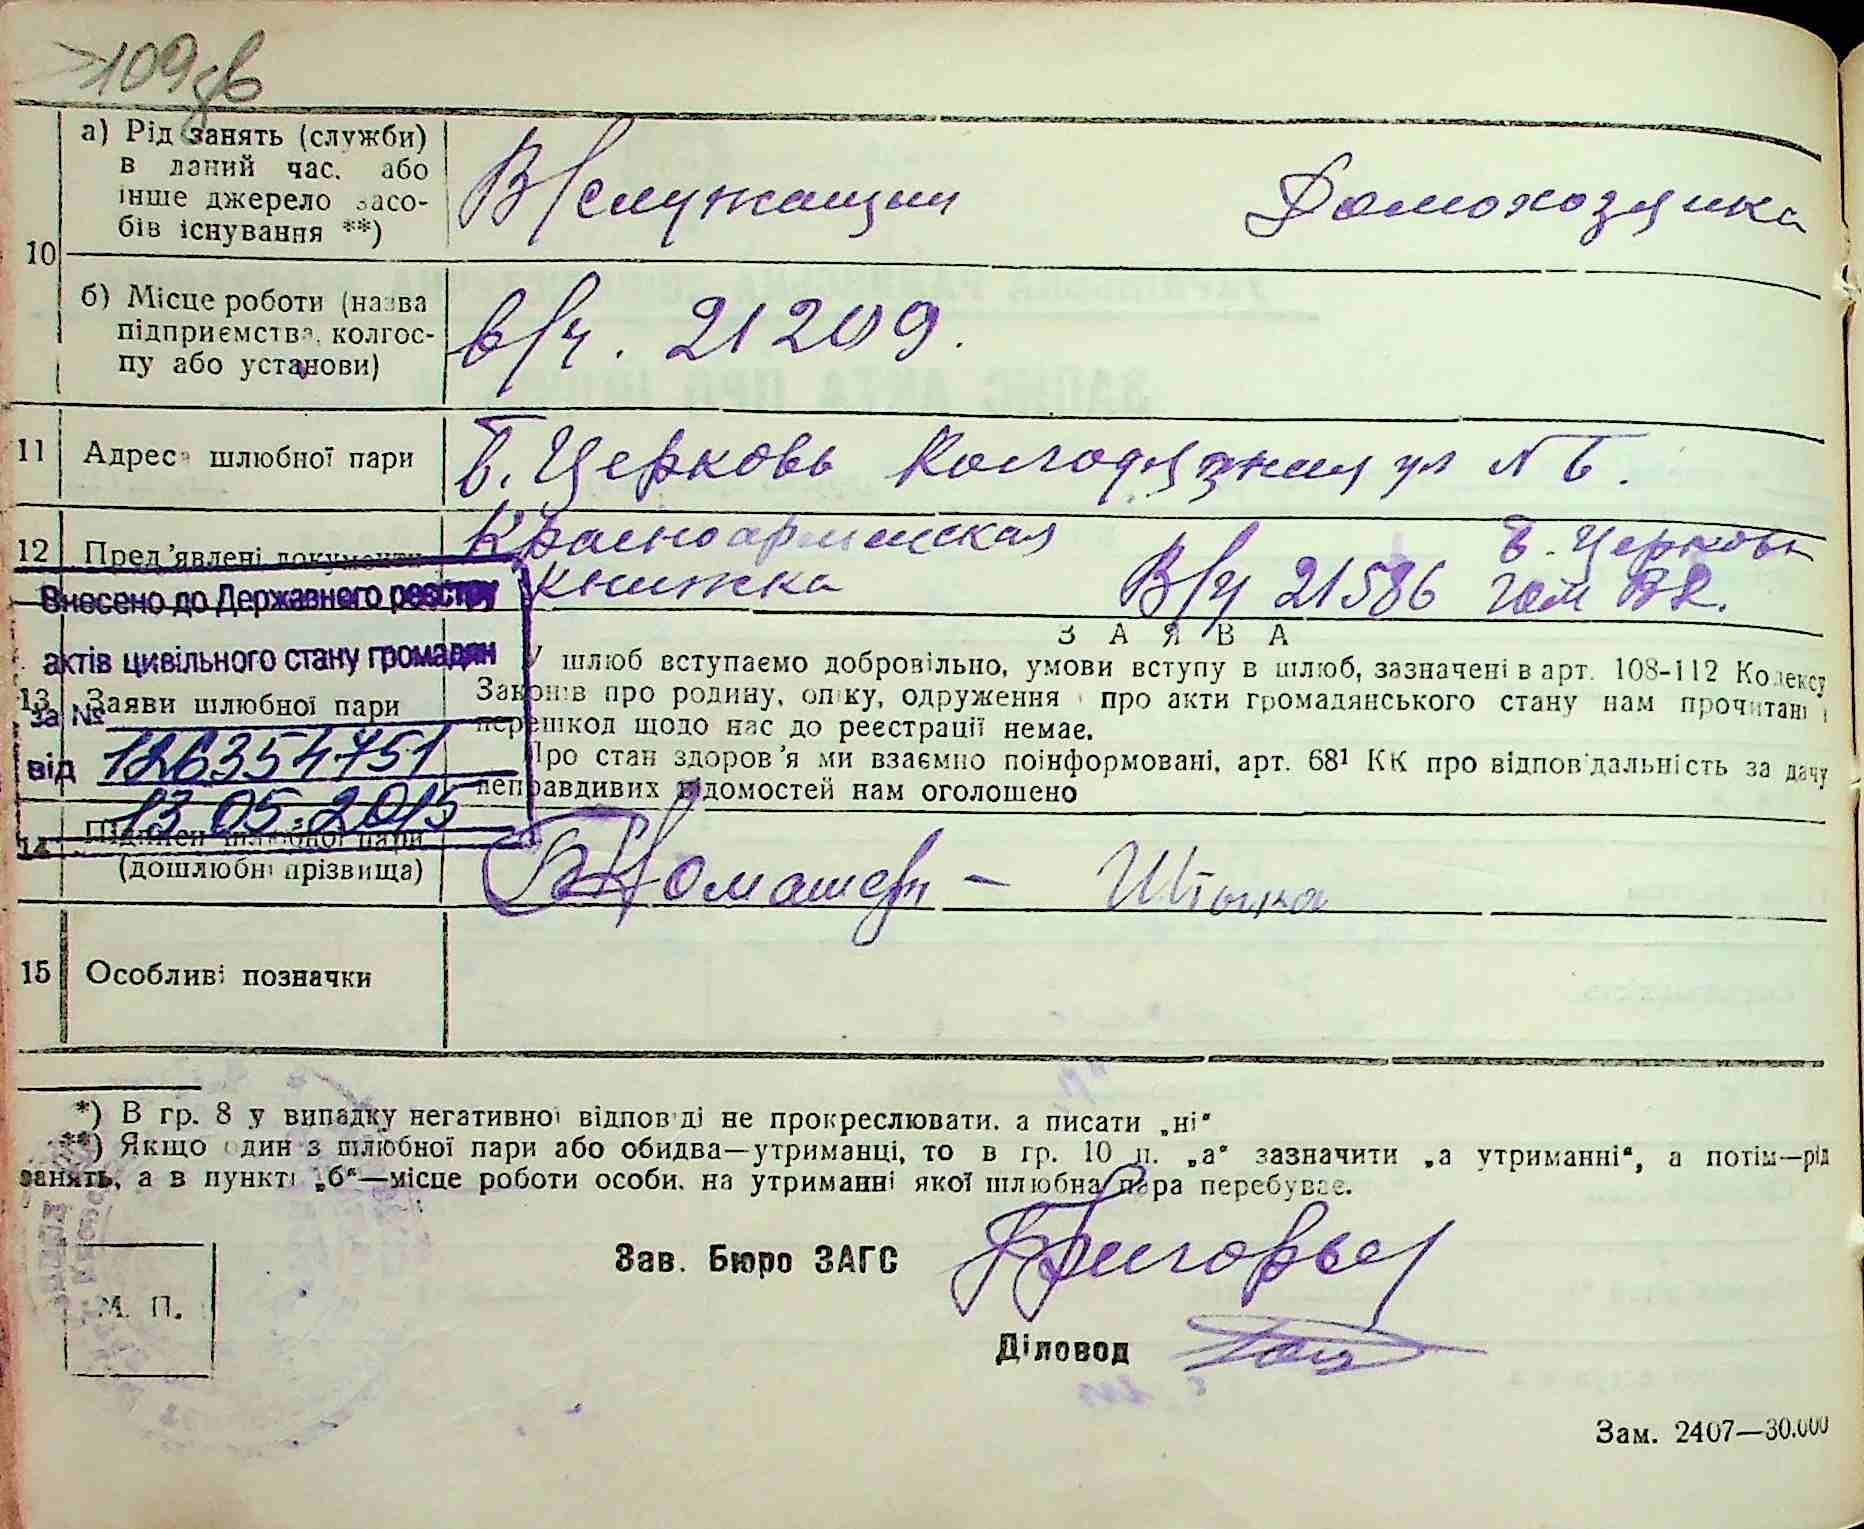 109зв
а) Рід занять (служби)
в даний час, або
інше джерело засо-
бів існування **)
В/служащий Домохозяйка
10
б) Місце роботи (назва
підприємства, колгос-
пу або установи)
в/ч. 21209.
11 Адреса шлюбної пари
Б. Церковь Колодязная ул №
12 Пред'явлені документи
Красноармейская
книжка
В/ч 21586
Б. Церковь
З А Я В А
У шлюб вступаємо добровільно, умови вступу в шлюб, зазначені в арт. 108-112 Кодексу
Законів про родину, опіку, одруження і про акти громадянського стану нам прочитані і
перешкод щодо нас до реєстрації немає.
Про стан здоров'я ми взаємно поінформовані, арт. 68¹ КК про відповідальність за дачу
неправдивих відомостей нам оголошено
13 Заяви шлюбної пари
Внесено до Державного реєстру
актів цивільного стану громадян
за №
126354751
від
13.05.2015
14 Підписи шлюбної пари
(дошлюбні прізвища)
15 Особливі позначки
*) В гр. 8 у випадку негативної відповіді не прокреслювати, а писати „ні“
**) Якщо один з шлюбної пари або обидва—утриманці, то в гр. 10 п. „а“ зазначити „а утриманні“, а потім—рід
занять, а в пункті „б“—місце роботи особи, на утриманні якої шлюбна пара перебуває.
Зав. Бюро ЗАГС
М. П.
Діловод
Зам. 2407—30.000